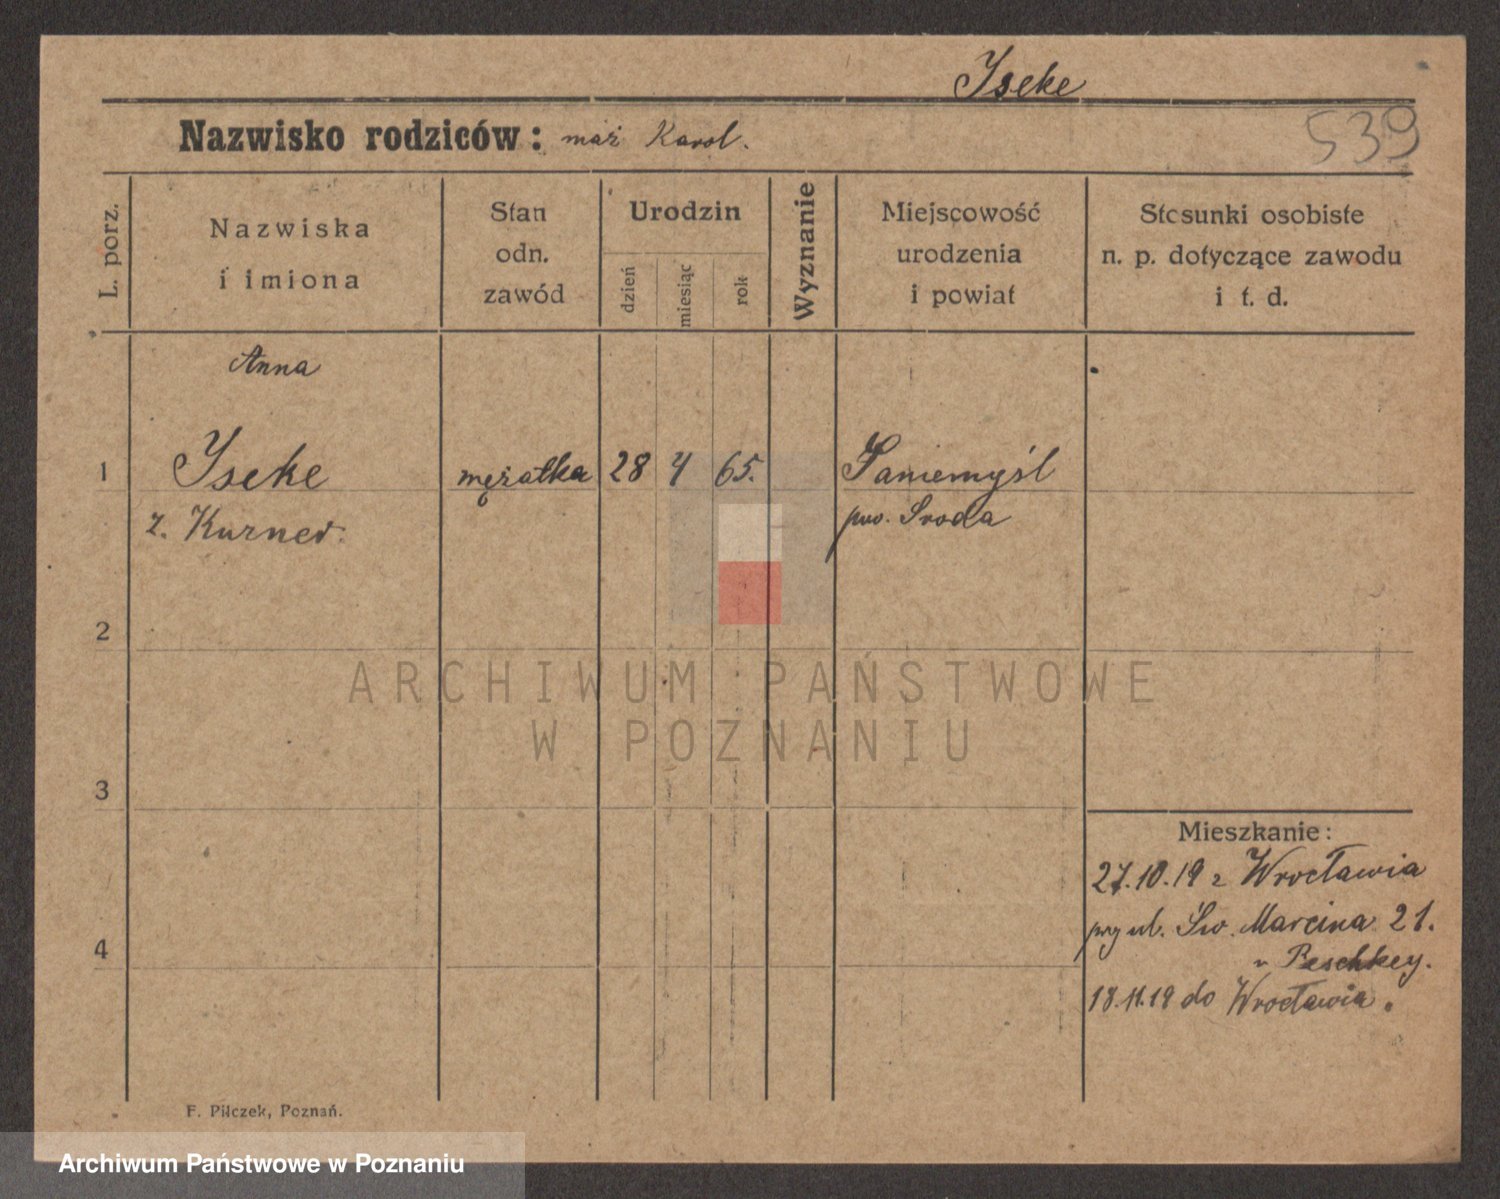 Iseke
539
Nazwisko rodziców: mąż Karol.
L. porz.
Nazwiska
i imiona
Stan
odn.
zawód
Urodzin
dzień
miesiąc
rok
Wyznanie
Miejscowość
urodzenia
i powiat
Stosunki osobiste
n. p. dotyczące zawodu
i t. d.
Anna
1 Iseke mężatka 28 4 65. Zaniemyśl
z. Kurner. pow. Środa
2
ARCHIWUM PAŃSTWOWE
W POZNANIU
3
Mieszkanie:
27.10.19 z Wrocławia
przy ul. Św. Marcina 21.
Peschkey.
18.11.19 do Wrocławia.
4
F. Pilczek, Poznań.
Archiwum Państwowe w Poznaniu